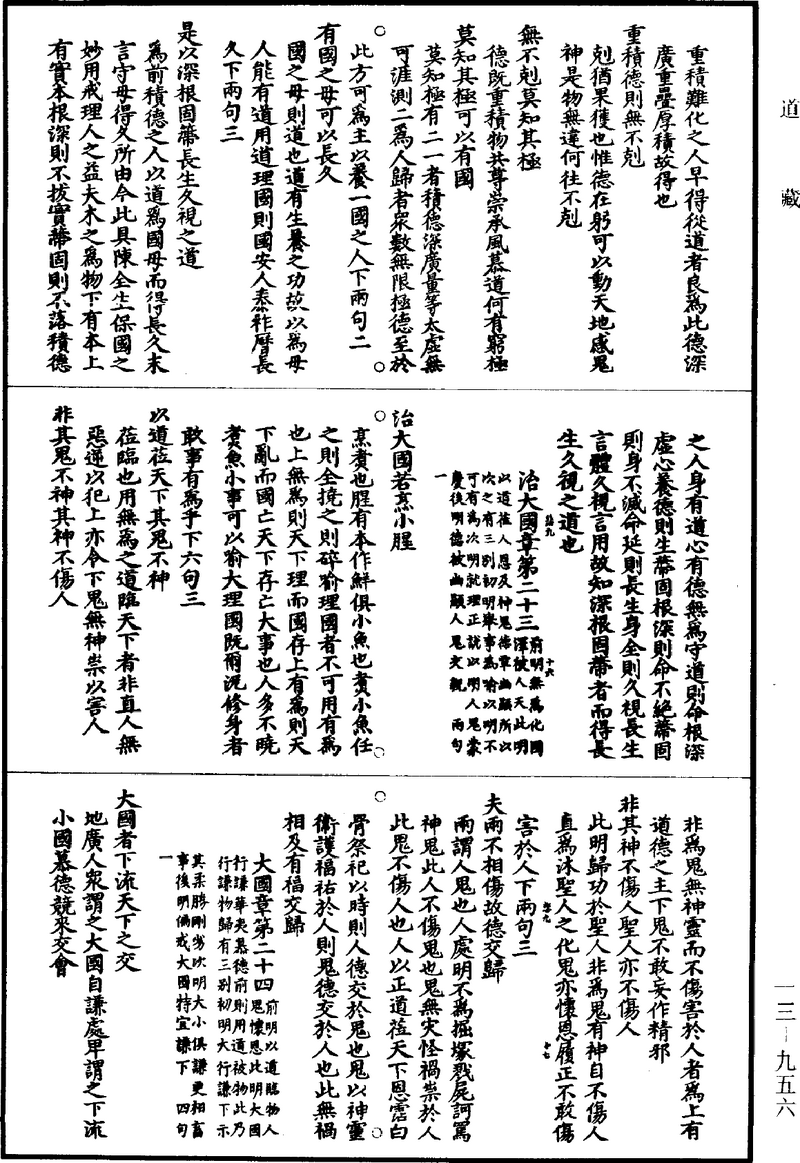 道藏
重積難化之人早得從道者良為此德深
廣重疊厚積故得也
重積德則無不剋
剋猶果獲也惟德在躬可以動天地感鬼
神是物無違何往不剋
無不剋莫知其極
德既重積物共尊崇承風慕道何有窮極
莫知其極可以有國
莫知極有二一者積德深廣量等太虛無
可涯測二為人歸者眾數無限極德至於
此方可為主以養一國之人下兩句二
有國之母可以長久
國之母則道也道有生長養之功故以為母
人能有道用道理國則國安人泰祚曆長
久下兩句三
是以深根固蔕長生久視之道
為前積德之人以道為國母而得長久末
言守母得久所由今此具陳全生保國之
妙用戒理人之益夫木之為物下有本上
有實本根深則不拔實蔕固則不落積德
之人身有道心有德無為守道則命根深
虛心養德則生蔕固根深則命不絕蔕固
則身不滅命延則長生身全則久視長生
言體久視言用故知深根固蔕者而得長
生久視之道也
治大國章第二十三
前明無為化國
渾彼人天此明
以道莅人恩及神鬼德覃幽顯所以
次之有三別初明舉事為喻以明不
可有為次明就理正說以明人鬼蒙
慶後明德被幽顯人鬼交親 兩句
一
治大國若烹小腥
烹煮也腥有本作鮮俱小魚也煮小魚任
之則全撓之則碎喻理國者不可用有為
也上無為則天下理而國存上有為則天
下亂而國亡天下存亡大事也人多不曉
煮魚小事可以喻大理國既爾況修身者
敢事有為乎下六句三
以道莅天下其鬼不神
莅臨也用無為之道臨天下者非直人無
惡逆以犯上亦令下鬼無神祟以害人
非其鬼不神其神不傷人
非為鬼無神靈而不傷害於人者為上有
道德之主下鬼不敢妄作精邪
非其神不傷人聖人亦不傷人
此明歸功於聖人非為鬼有神自不傷人
直為沐聖人之化鬼亦懷恩履正不敢傷
害於人下兩句三
夫兩不相傷故德交歸
兩謂人鬼也人處明不為掘塚戮屍訶罵
神鬼此人不傷鬼也鬼無灾怪禍祟於人
此鬼不傷人也人以正道莅天下恩霑白
骨祭祀以時則人德交於鬼也鬼以神靈
衛護福祐於人則鬼德交於人也此無禍
相及有福交歸
大國章第二十四
前明以道臨物人
鬼懷恩此明大國
行謙華夷慕德前則用道被物此乃
行謙物歸有三別初明大行謙下示
其柔勝剛劣次明大小俱謙更相畜
事後明偏戒大國特宜謙下 四句
一
大國者下流天下之交
地廣人眾謂之大國自謙處卑謂之下流
小國慕德競來交會
一三-九五六